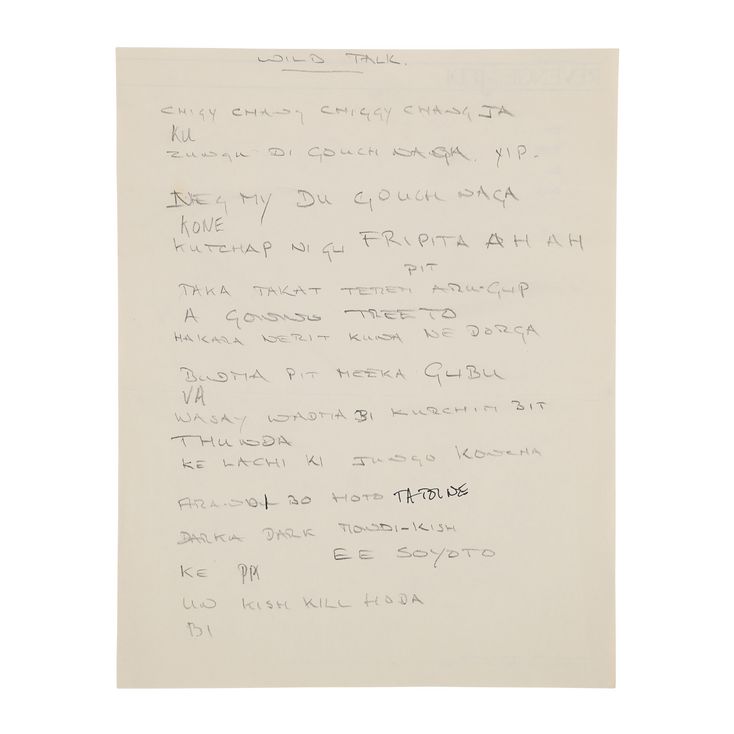 WILD TALK.
CHIGY CHANG CHIGGY CHANG JA
KU
ZUNGU DI GOUCH NAGA. YIP-
NEG MY DU GOUCH NAGA
KONE
KUTCHAP NI GU FRIPITA AH AH
PIT
TAKA TAKAT TEREM ARU-GUP
A GOWWU TREETO
HAKARA NERIT KUWA NE DORGA
BUDMA PIT MEEKA GUBU
VA
WASAY WADMA BI KURCHIM BIT
THUWDA
KE LACHI KI JUWGO KOWCHA
BO HOTO TATOINE
DARKA DARK MOWDI-KISH
EE SOYOTO
KE
UW KISH KILL HODA
BI